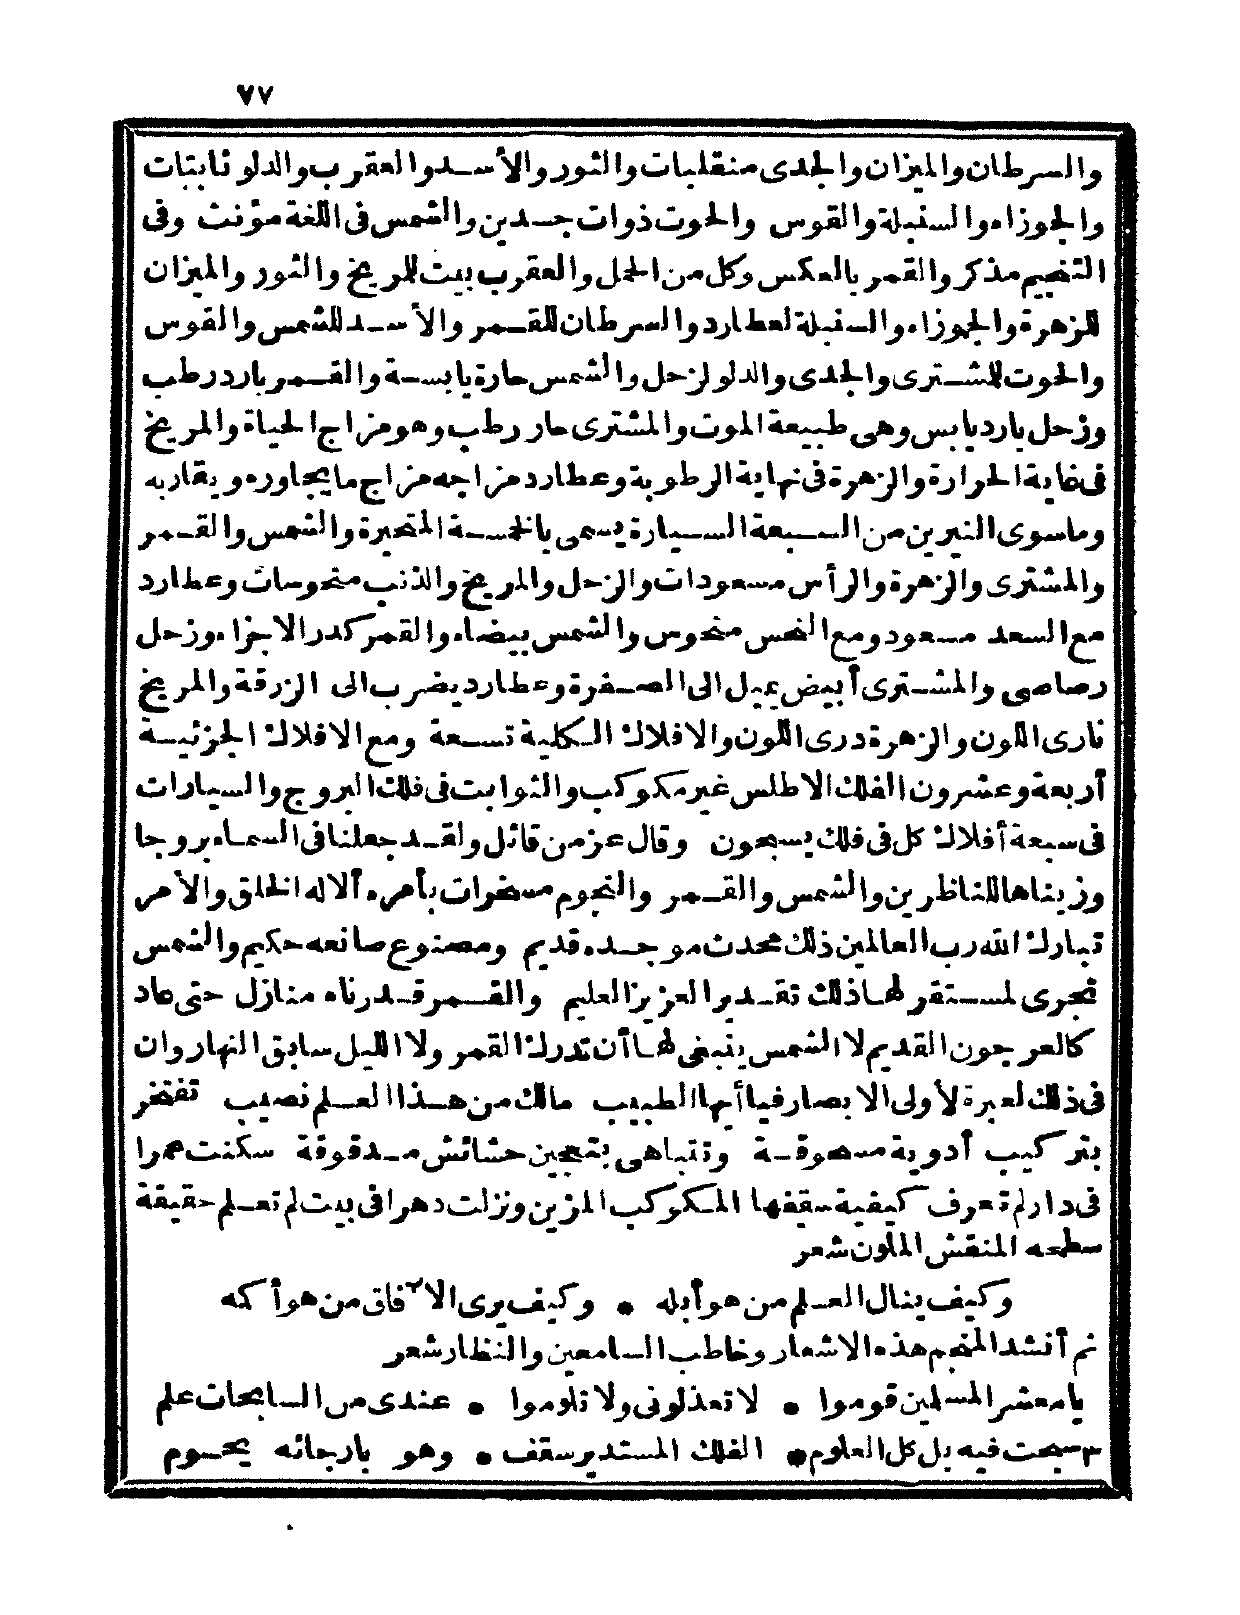 ٧٧
والسرطان والميزان والجدى منقلبات والثور والأسد والعقرب والدلو ثابتات
والجوزاء والسنبلة والقوس والحوت ذوات جسدين والشمس فى اللغة مؤنث وفى
التنجيم مذكر والقمر بالعكس وكل من الحمل والعقرب بيت للمريخ والثور والميزان
للزهرة والجوزاء والسنبلة لعطارد والسرطان للقمر والأسد للشمس والقوس
والحوت للمشترى والجدى والدلو لزحل والشمس حارة يابسة والقمر بارد رطب
وزحل بارد يابس وهى طبيعة الموت والمشترى حار رطب وهو مزاج الحياة والمريخ
فى غاية الحرارة والزهرة فى نهاية الرطوبة وعطارد مزاجه مزاج ما يجاوره ويقاربه
وما سوى النيرين من السبعة السيارة يسمى بالخمسة المتحيرة والشمس والقمر
والمشترى والزهرة والرأس مسعودات والزحل والمريخ والذنب منحوسات وعطارد
مع السعد مسعود ومع النحس منحوس والشمس بيضاء والقمر كدر الاجزاء وزحل
رصاصى والمشترى أبيض يميل الى الصفرة وعطارد يضرب الى الزرقة والمريخ
نارى اللون والزهرة درى اللون والافلاك الكلية تسعة ومع الافلاك الجزئية
أربعة وعشرون الفلك الاطلس غير مكوكب والثوابت فى فلك البروج والسيارات
فى سبعة أفلاك كل فى فلك يسبحون وقال عز من قائل ولقد جعلنا فى السماء بروجا
وزيناها للناظرين والشمس والقمر والنجوم مسخرات بأمره ألا له الخلق والأمر
تبارك الله رب العالمين ذلك محدث موجده قديم ومصنوع صانعه حكيم والشمس
تجرى لمستقر لها ذلك تقدير العزيز العليم والقمر قدرناه منازل حتى عاد
كالعرجون القديم لا الشمس ينبغى لها أن تدرك القمر ولا الليل سابق النهار وان
فى ذلك لعبرة لأولى الابصار فيا أيها الطبيب مالك من هذا العلم نصيب تفتخر
بتركيب أدوية مسحوقة وتتباهى بتعجين حشائش مدقوقة سكنت عمرا
فى دار لم تعرف كيفية سقفها المكوكب المزين ونزلت دهرا فى بيت لم تعلم حقيقة
سطحه المنقش الملون شعر
وكيف ينال العلم من هو أبله • وكيف يرى الآفاق من هو أكمه
ثم أنشد المنجم هذه الاشعار وخاطب السامعين والنظار شعر
يا معشر المسلمين قوموا • لا تعذلونى ولا تلوموا • عندى من السابحات علم
سبحت فيه بل كل العلوم • الفلك المستدير سقف • وهو بارجائه يحوم